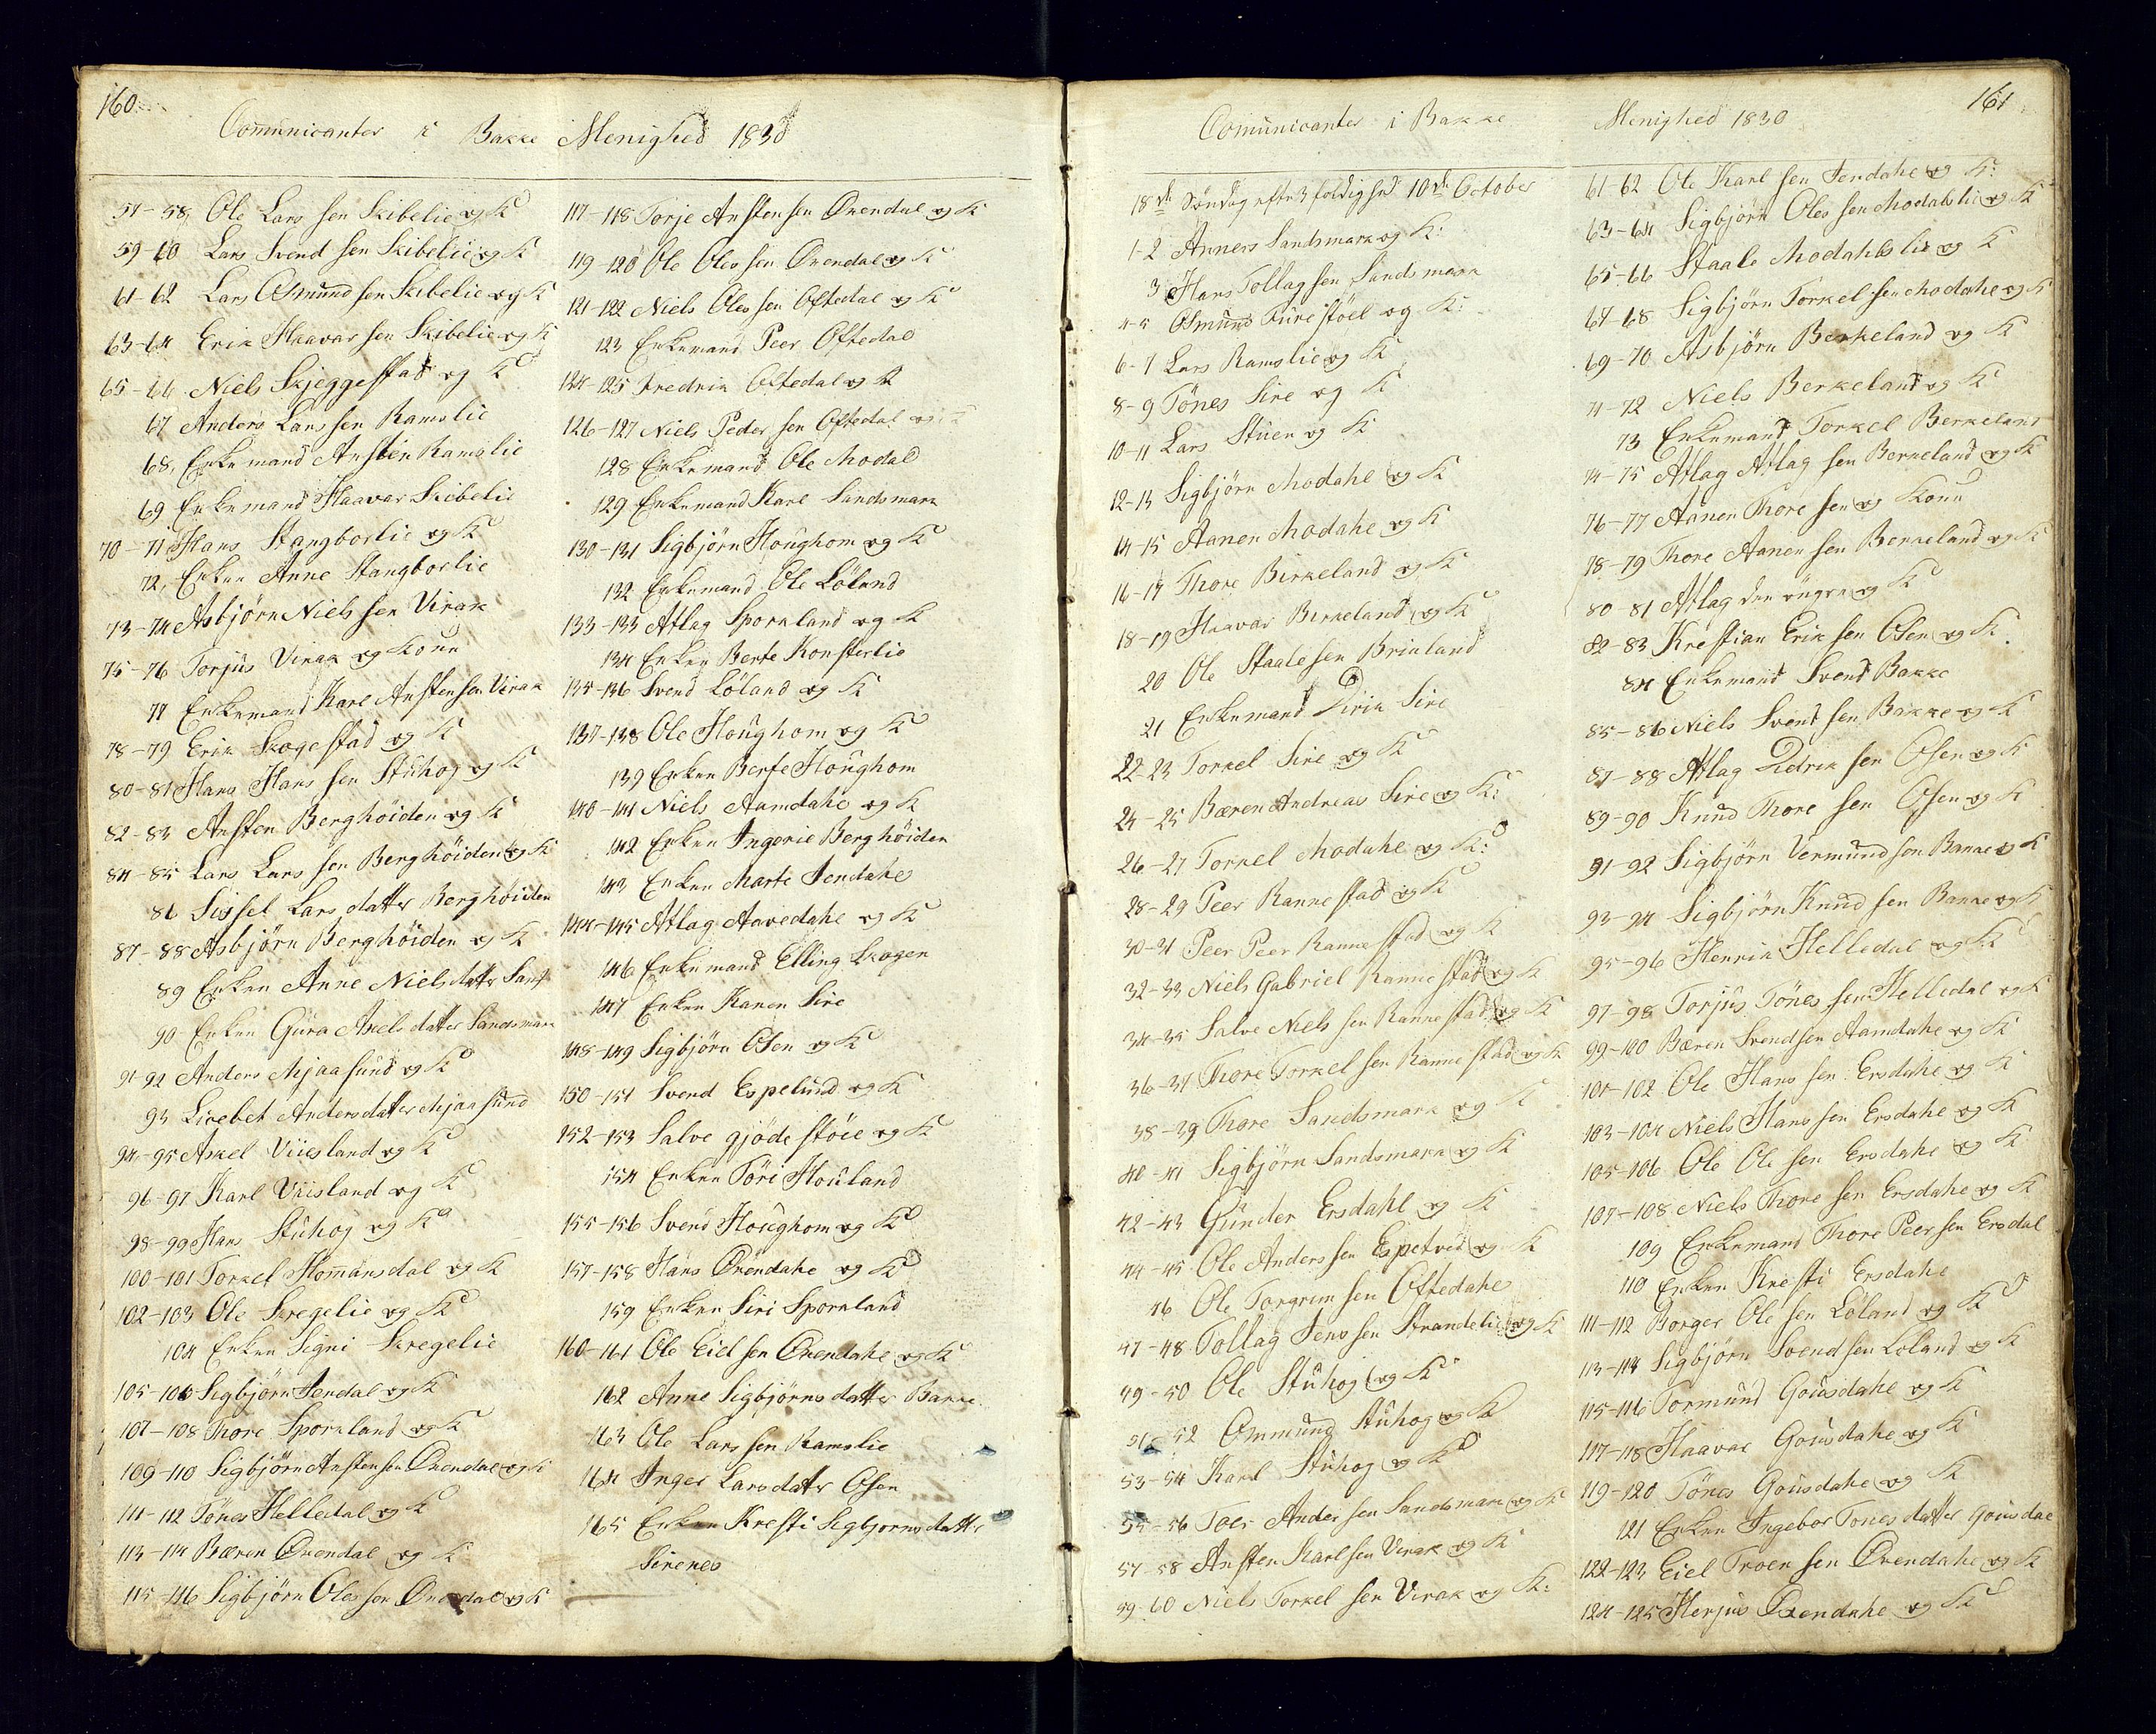 160
Comunicanter i Bakke Menighed 1830
57-58, Ole Lars sen Skibelie og K
59-60 Lars Svend sen Skibelie og K
61-62 Lars Osmund sen Skibelie og K
63-64 Erik Haavar sen Skibelie og K
65-66 Niels Skjeggestad og K
67 Anders Lars sen Ramslie
68, Enkemand Ansten Ramslie
69 Enkemand Haavar Skibelie
70-71 Hans Stangborlie og K
72, Enken Anne Stangborlie
73-74 Asbjörn Niels sen Virak
75-76 Torjus Virak og Konn
77 Enkemand Karl Ansten sen Virak
78-79 Erik Skogestad og K
80-81 Hans Hans sen Stuhog og K
82-83 Ansten Berghöiden og K
84-85 Lars Lars sen Berghöiden og K
86 Sissel Lars datter Berghöiden
87-88 Asbjörn Berghöiden og K
89 Enken Anne Niels datter Sands
90 Enken Gura Axels datter Sandsmark
91-92 Anders Mjaasund og K
93 Lisebet Anders datter Mjaasund
94-95 Askel Viisland og K
96-97 Karl Viisland og K
98-99 Hans Stuhog og K
100-101 Torkel Homansdal og K
102-103 Ole Skregelie og K
104 Enken Signi Skregelie
105-106 Sigbjörn Jendal og K
107-108 Thore Spornland og K
109-110 Sigbjörn Ansten sen Ovendal og K
111-112 Tönes Helledal og K
113-114 Bæren Ovendal og K
115-116 Sigbjörn Oles sen Ovendal og K
117-118 Torje Ansten sen Ovendal og K
119-120 Ole Oles sen Ovendal og K
121-122 Niels Oles sen Oftedal og K
123 Enkemand Peer Oftedal
124-125 Fredrik Oftedal og K
126-127 Niels Peder sen Oftedal og K
128 Enkemand Ole Modal
129 Enkemand Karl Sandsmark
130-131 Sigbjörn Houghom og K
132 Enkemand Ole Löland
133-133 Atlag Spornland og K
134 Enken Berte Konsterlie
135-136 Svend Löland og K
137-138 Ole Houghom og K
139 Enken Berte Houghom
140-141 Niels Aamdahl og K
142 Enken Ingerie Berghöiden
143 Enken Marte Jendahl
144-145 Atlag Aavedahl og K
146 Enkemand Elling Skogen
147 Enken Karen Sire
148-149 Sigbjörn Osen og K
150-151 Svend Espelund og K
152-153 Salve gjödestöie og K
154 Enken Töri Houland
155-156 Svend Houghom og K
157-158 Hans Ovendahl og K
159 Enken Siri Spornland
160-161 Ole Eiel sen Ovendahl og K
162 Anne Sigbjörns datter Bakke
163 Ole Lars sen Ramslie
164 Inger Lars datter Osen
165 Enken Kresti Sigbjorns datter
Sirenes
161
Comunicanter i Bakke Menighed 1830
18de Söndag efter 3foldighed 10de October
1-2 Anners Sandsmark og K:
3 Hans Tollag sen Sandsmark
4-5 Osmund Furestöel og K:
6-7 Lars Ramslie og K
8-9 Tönes Sire og K
10-11 Lars Stuen og K
12-13 Sigbjörn Modahl og K
14-15 Aanen Modahl og K
16-17 Thore Birkeland og K
18-19 Haavar Birkeland og K
20 Ole Staale sen Brinland
21 Enkemand Dirik Sire
22-23 Torkel Sire og K
24-25 Bæren Andreas Sire og K:
26-27 Torkel Modahl og K:
28-29 Peer Rannestad og K
30-31 Peer Peer Rannestad og K
32-33 Niels Gabriel Rannestad og K
34-35 Salve Niels sen Rannestad og K
36-37 Thore Torkel sen Rannestad og K
38-39 Thore Sandsmark og K
40-41 Sigbjörn Sandsmark og K
42-43 Gunder Ersdahl og K
44-45 Ole Anders sen Espetved og K
46 Ole Torgrim sen Oftedahl
47-48 Tollag Jens sen Strandelie og K
49-50 Ole Stuhog og K
51-52 Ommund Stuhog og K
53-54 Karl Stuhog og K
55-56 Toer Anders sen Sandsmark og K
57-58 Ansten Karl sen Virak og K
59-60 Niels Torkel sen Virak og K:
61-62 Ole Karl sen Jendahl og K:
63-64 Sigbjörn Oles sen Modahlslie og K
65-66 Staale Modahlslie og K
67-68 Sigbjörn Torkel sen Modahl og K
69-70 Asbjörn Berkeland og K
71-72 Niels Berkeland og K
73 Enkemand Torkel Berkeland
74-75 Atlag Atlag sen Berkeland og K
76-77 Aanen Thore sen og Konn
78-79 Thore Aanen sen Berkeland og K
80-81 Atlag den üngre og K
82-83 Krestian Erik sen Osen og K
84 Enkemand Svend Bakke
85-86 Niels Svend sen Bakke og K
87-88 Atlag Didrik sen Osen og K
89-90 Knud Thore sen Osen og K
91-92 Sigbjörn Vermund sen Bakke og K
93-94 Sigbjörn Knud sen Bakke og K
95-96 Henrik Helledal og K
97-98 Torjus Tönes sen Helledal og K
99-100 Bæren Svendsen Aamdahl og K
101-102 Ole Hans sen Ersdahl og K
103-104 Niels Hans sen Ersdahl og K
105-106 Ole Ole sen Ersdahl og K
107-108 Niels Thore sen Ersdahl og K
109 Enkemand Thore Peer sen Ersdal
110 Enken Kresti Ersdahl
111-112 Borger Ole sen Löland og K
113-114 Sigbjörn Svend sen Löland og K
115-116 Tormund Gousdahl og K
117-118 Haavar Gousdahl og K
119-120 Tönes Gousdahl og K
121 Enken Ingebor Tones datter Gousdal
122-123 Eiel Troen sen Ovendahl og K
124-125 Herjus Ovendahl og K